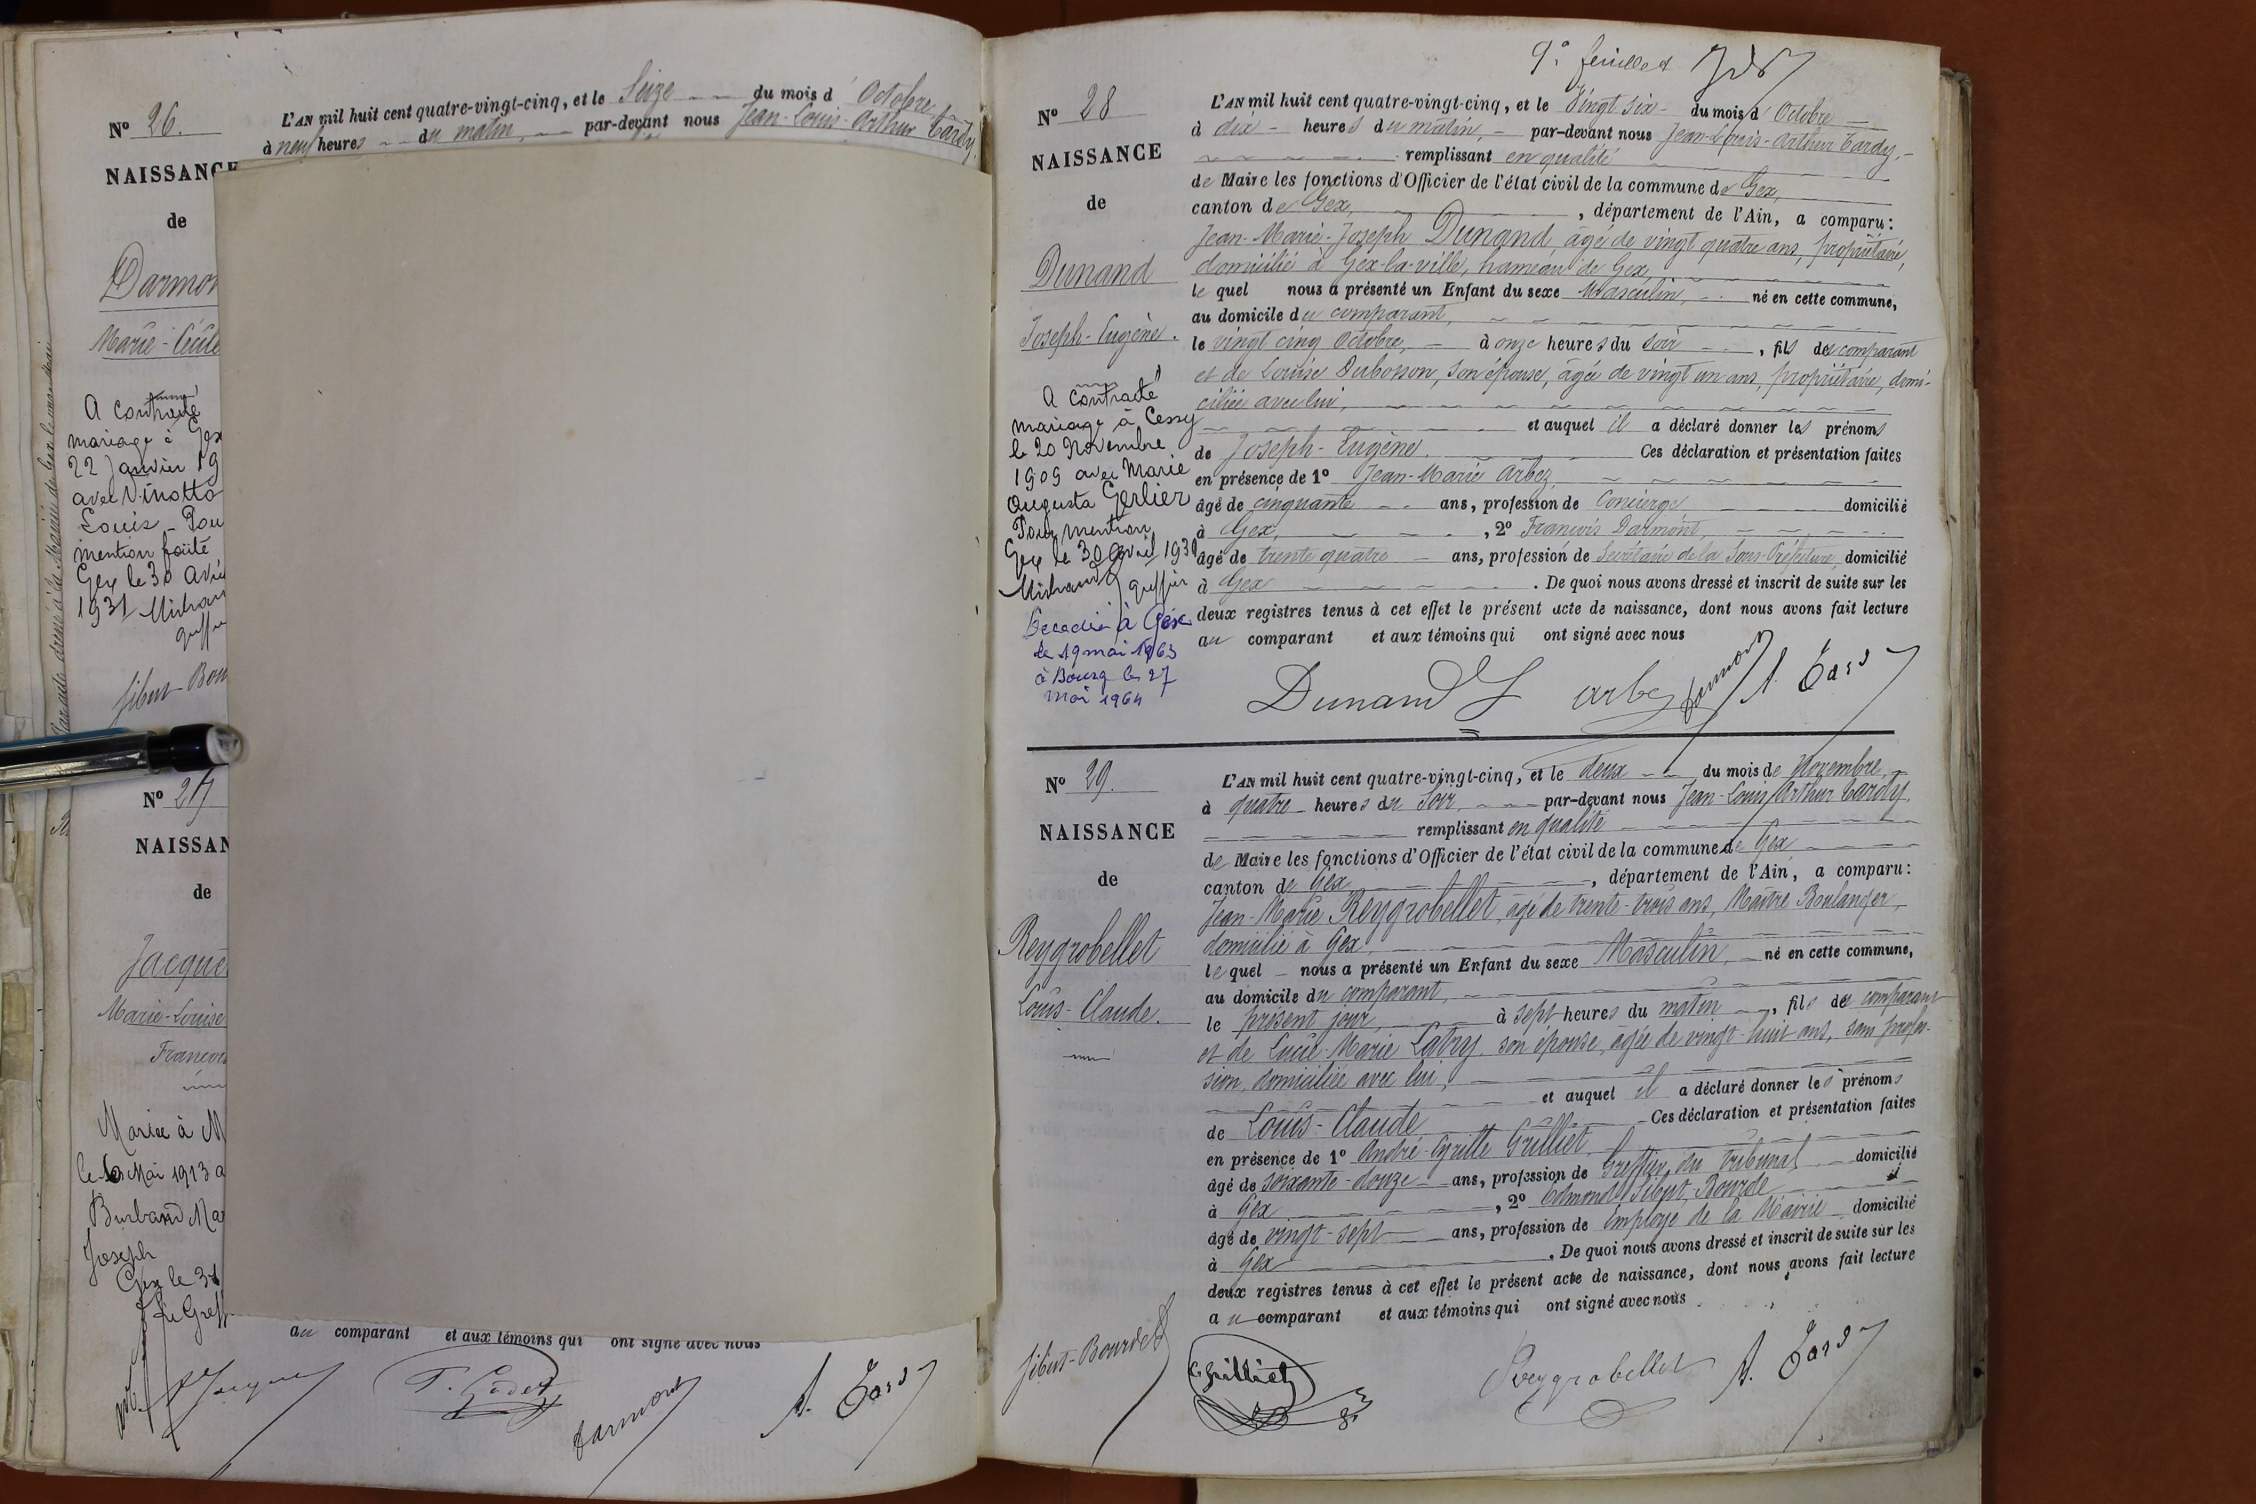 Nº 26.
NAISSANCE
de
Darmon
Marie-
A contracté
mariage à Gex
22 Janvier 19
avec Vinotto
Louis - Pou
mention faite
Gex le 30 Avri
1931 Michau
greffie
Sibut-Bou
L'AN mil huit cent quatre-vingt-cinq, et le Seize du mois d'Octobre
à neuf heures du matin, par-devant nous Jean-Louis-Arthur Tardy,
Nº 27
NAISSAN
de
Jacque
Marie-Louise
François
Mariée à M
le Mai 1913 a
Burband Ma
Joseph
Gex le 31
Le Greff
au comparant et aux témoins qui ont signé avec nous
Jacque
T. Godet
Darmont
A. Tardy
9e feuillet
Nº 28
NAISSANCE
de
Dunand
Joseph-Eugène.
A contracté
mariage à Cessy
le 20 Novembre
1909 avec Marie
Augusta Gerlier
Pour mention
Gex le 30 avril 1931
Michaud greffier
Décédé à Gex
le 19 mai 1963
à Bourg le 27
mai 1964
L'AN mil huit cent quatre-vingt-cinq, et le Vingt six du mois d'Octobre
à dix heures du matin, par-devant nous Jean-Louis-Arthur Tardy,
remplissant en qualité
de Maire les fonctions d'Officier de l'état civil de la commune de Gex,
canton de Gex, , département de l'Ain, a comparu:
Jean-Marie-Joseph Dunand, âgé de vingt quatre ans, propriétaire,
domicilié à Gex-la-ville, hameau de Gex,
lequel nous a présenté un Enfant du sexe Masculin, né en cette commune,
au domicile du comparant,
le vingt cinq Octobre, à onze heures du soir , fils des comparant
et de Louise Dubosson, son épouse, âgée de vingt un ans, propriétaire, domi-
ciliée avec lui,
et auquel il a déclaré donner les prénoms
de Joseph-Eugène. Ces déclaration et présentation faites
en présence de 1º Jean-Marie Arbez,
âgé de cinquante ans, profession de Concierge domicilié
à Gex, , 2º François Darmont,
âgé de trente quatre ans, profession de Secrétaire de la Sous-Préfecture, domicilié
à Gex . De quoi nous avons dressé et inscrit de suite sur les
deux registres tenus à cet effet le présent acte de naissance, dont nous avons fait lecture
au comparant et aux témoins qui ont signé avec nous
Dunand J Arbez Darmont A. Tardy
Nº 29.
NAISSANCE
de
Reygrobellet
Louis-Claude.
L'AN mil huit cent quatre-vingt-cinq, et le deux du mois de Novembre,
à quatre heures du Soir, par-devant nous Jean-Louis Arthur Tardy,
remplissant en qualité
de Maire les fonctions d'Officier de l'état civil de la commune de Gex
canton de Gex , département de l'Ain, a comparu:
Jean-Marie Reygrobellet, âgé de trente-trois ans, Maître Boulanger,
domicilié à Gex,
lequel nous a présenté un Enfant du sexe Masculin, né en cette commune,
au domicile du comparant,
le présent jour, à sept heures du matin , fils des comparant
et de Lucie-Marie Labry, son épouse, âgée de vingt-huit ans, sans profes-
sion, domiciliée avec lui,
et auquel il a déclaré donner les prénoms
de Louis-Claude Ces déclaration et présentation faites
en présence de 1º André-Cyrille Grilliet,
âgé de soixante-douze ans, profession de Greffier du tribunal domicilié
à Gex , 2º Edmond Sibut-Bourde
âgé de vingt-sept ans, profession de Employé de la Mairie domicilié
à Gex . De quoi nous avons dressé et inscrit de suite sur les
deux registres tenus à cet effet le présent acte de naissance, dont nous avons fait lecture
au comparant et aux témoins qui ont signé avec nous
Sibut-Bourde
C. Grilliet
Reygrobellet
A. Tardy